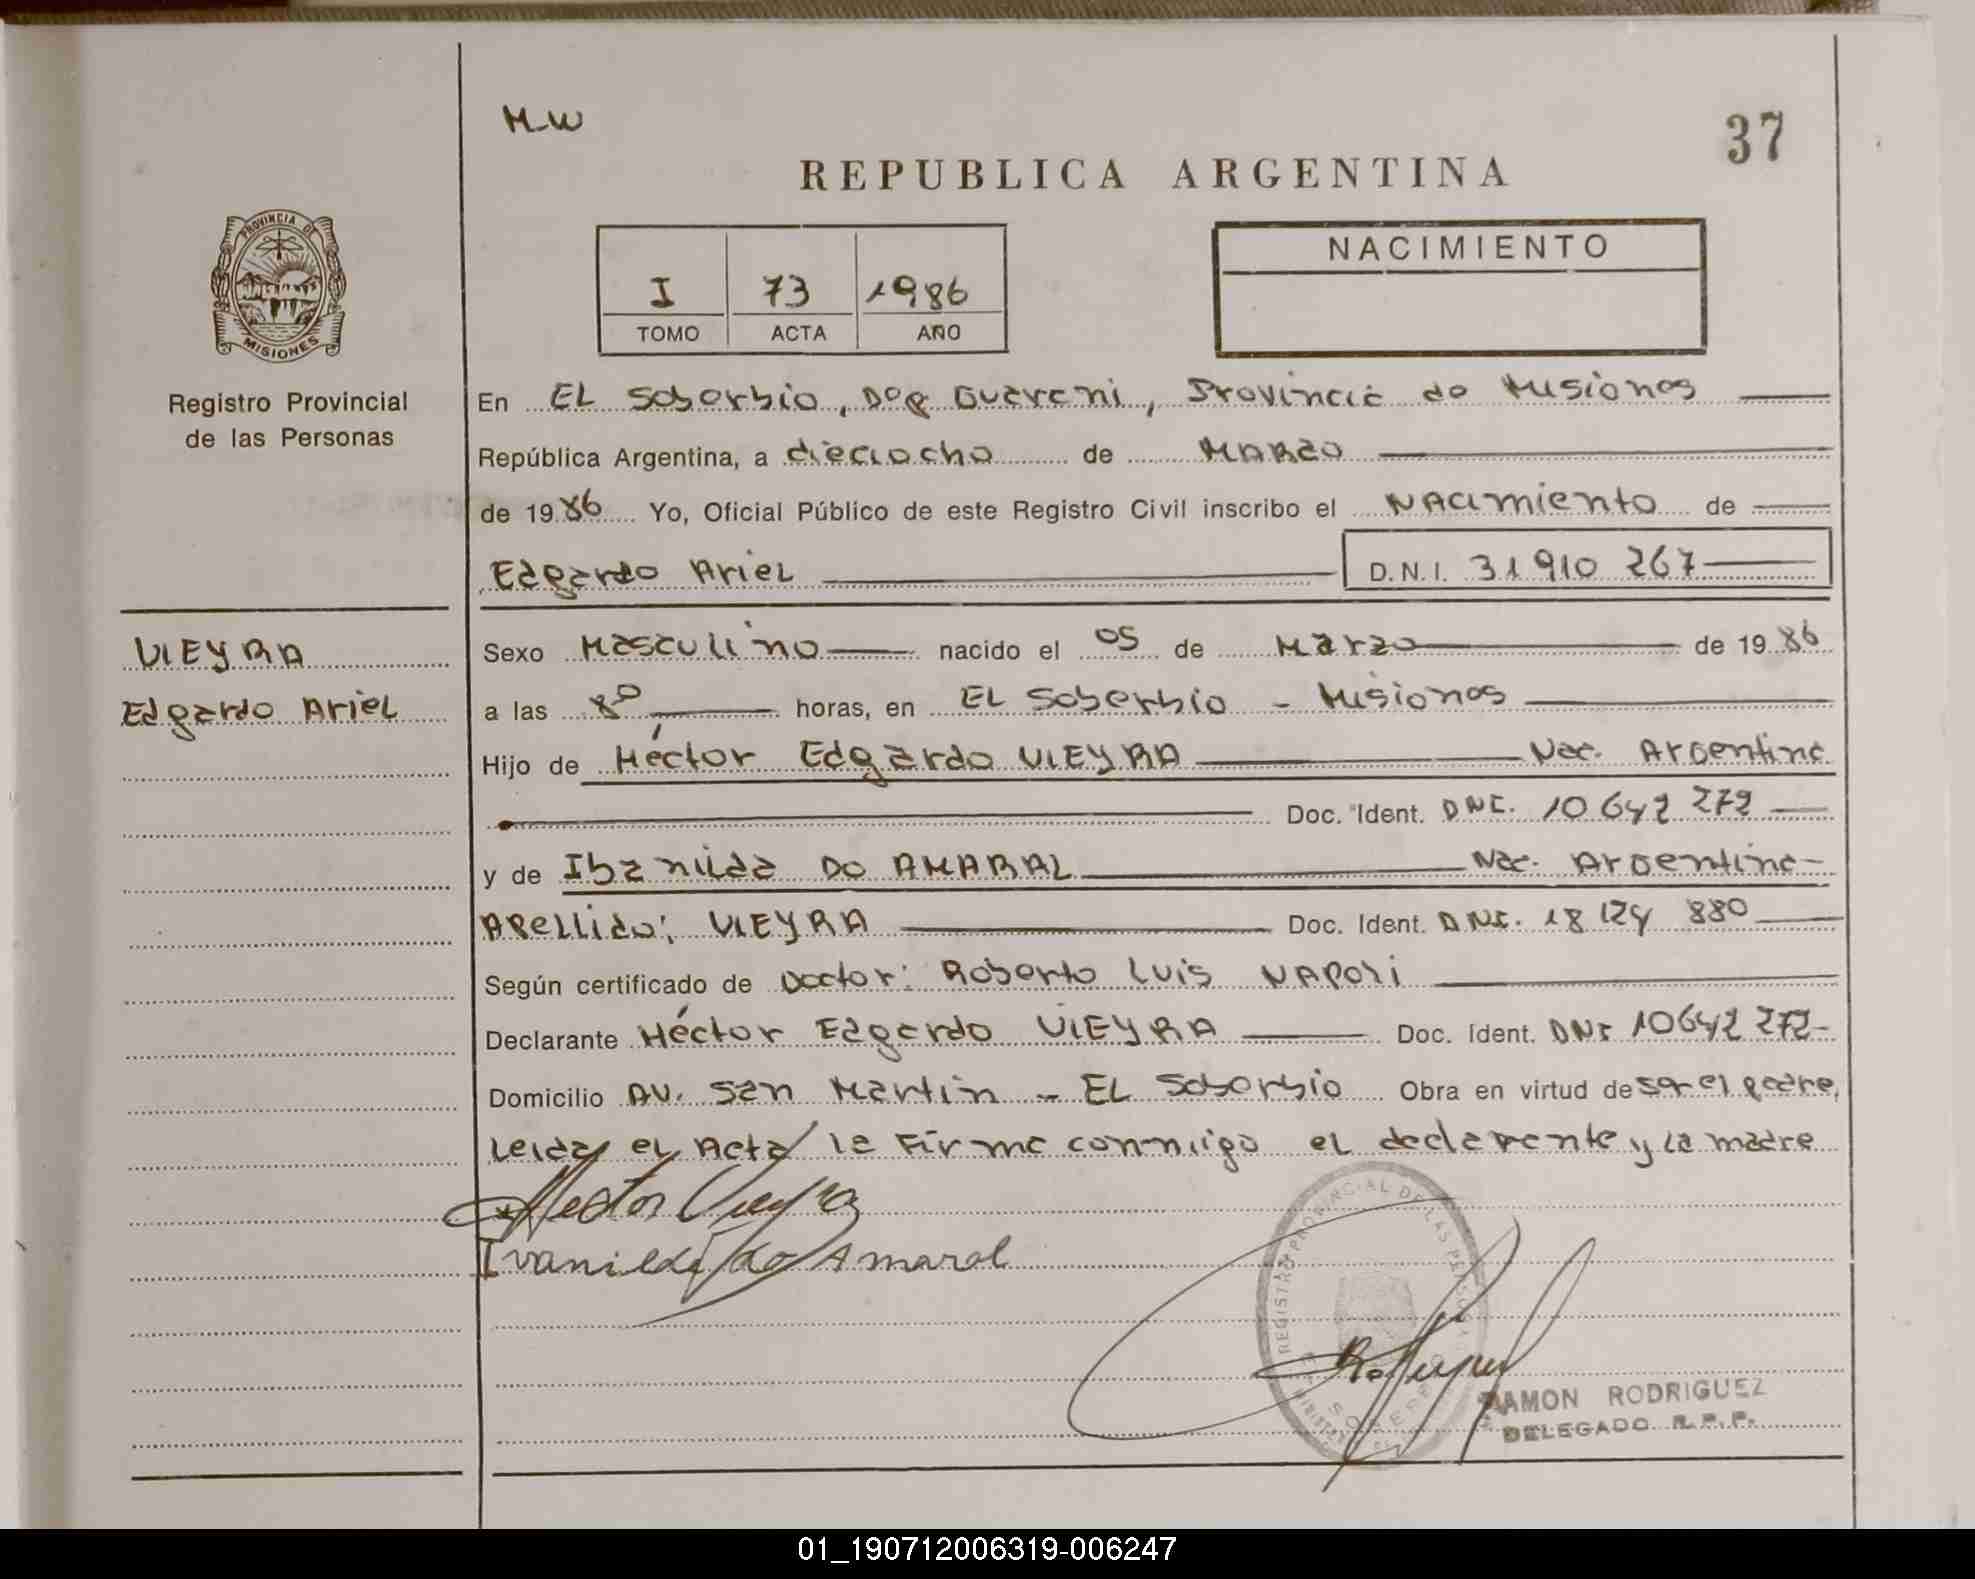 M-W
37
REPUBLICA ARGENTINA
PROVINCIA DE
MISIONES
Registro Provincial
de las Personas
I 73 1986
TOMO ACTA AÑO
NACIMIENTO
En EL Soberbio, Dº Guarani, Provincia de Misiones
República Argentina, a dieciocho de MARZO
de 1986 Yo, Oficial Público de este Registro Civil inscribo el NACimiento de
Edgardo Ariel D.N.I. 31 910 267
VIEYRA
Edgardo Ariel
Sexo Masculino nacido el 05 de Marzo de 1986
a las 8º horas, en EL Soberbio - Misiones
Hijo de Héctor Edgardo VIEYRA Nac. Argentina
Doc. Ident. DNI. 10 642 272
y de Ibanilda DO AMARAL Nac. Argentina
Apellido: VIEYRA Doc. Ident. DNI. 18 124 880
Según certificado de Doctor: Roberto Luis NAPOLI
Declarante Héctor Edgardo VIEYRA Doc. Ident. DNI 10642 272
Domicilio AV. San Martin - EL Soberbio Obra en virtud de ser el padre,
Leida el Acta la Firma conmigo el declarante y la madre
Hector Vieyra
Ivanilda do Amaral
REGISTRO PROVINCIAL DE LAS PERSONAS
SOBERBIO
RAMON RODRIGUEZ
DELEGADO R.P.P.
01_190712006319-006247